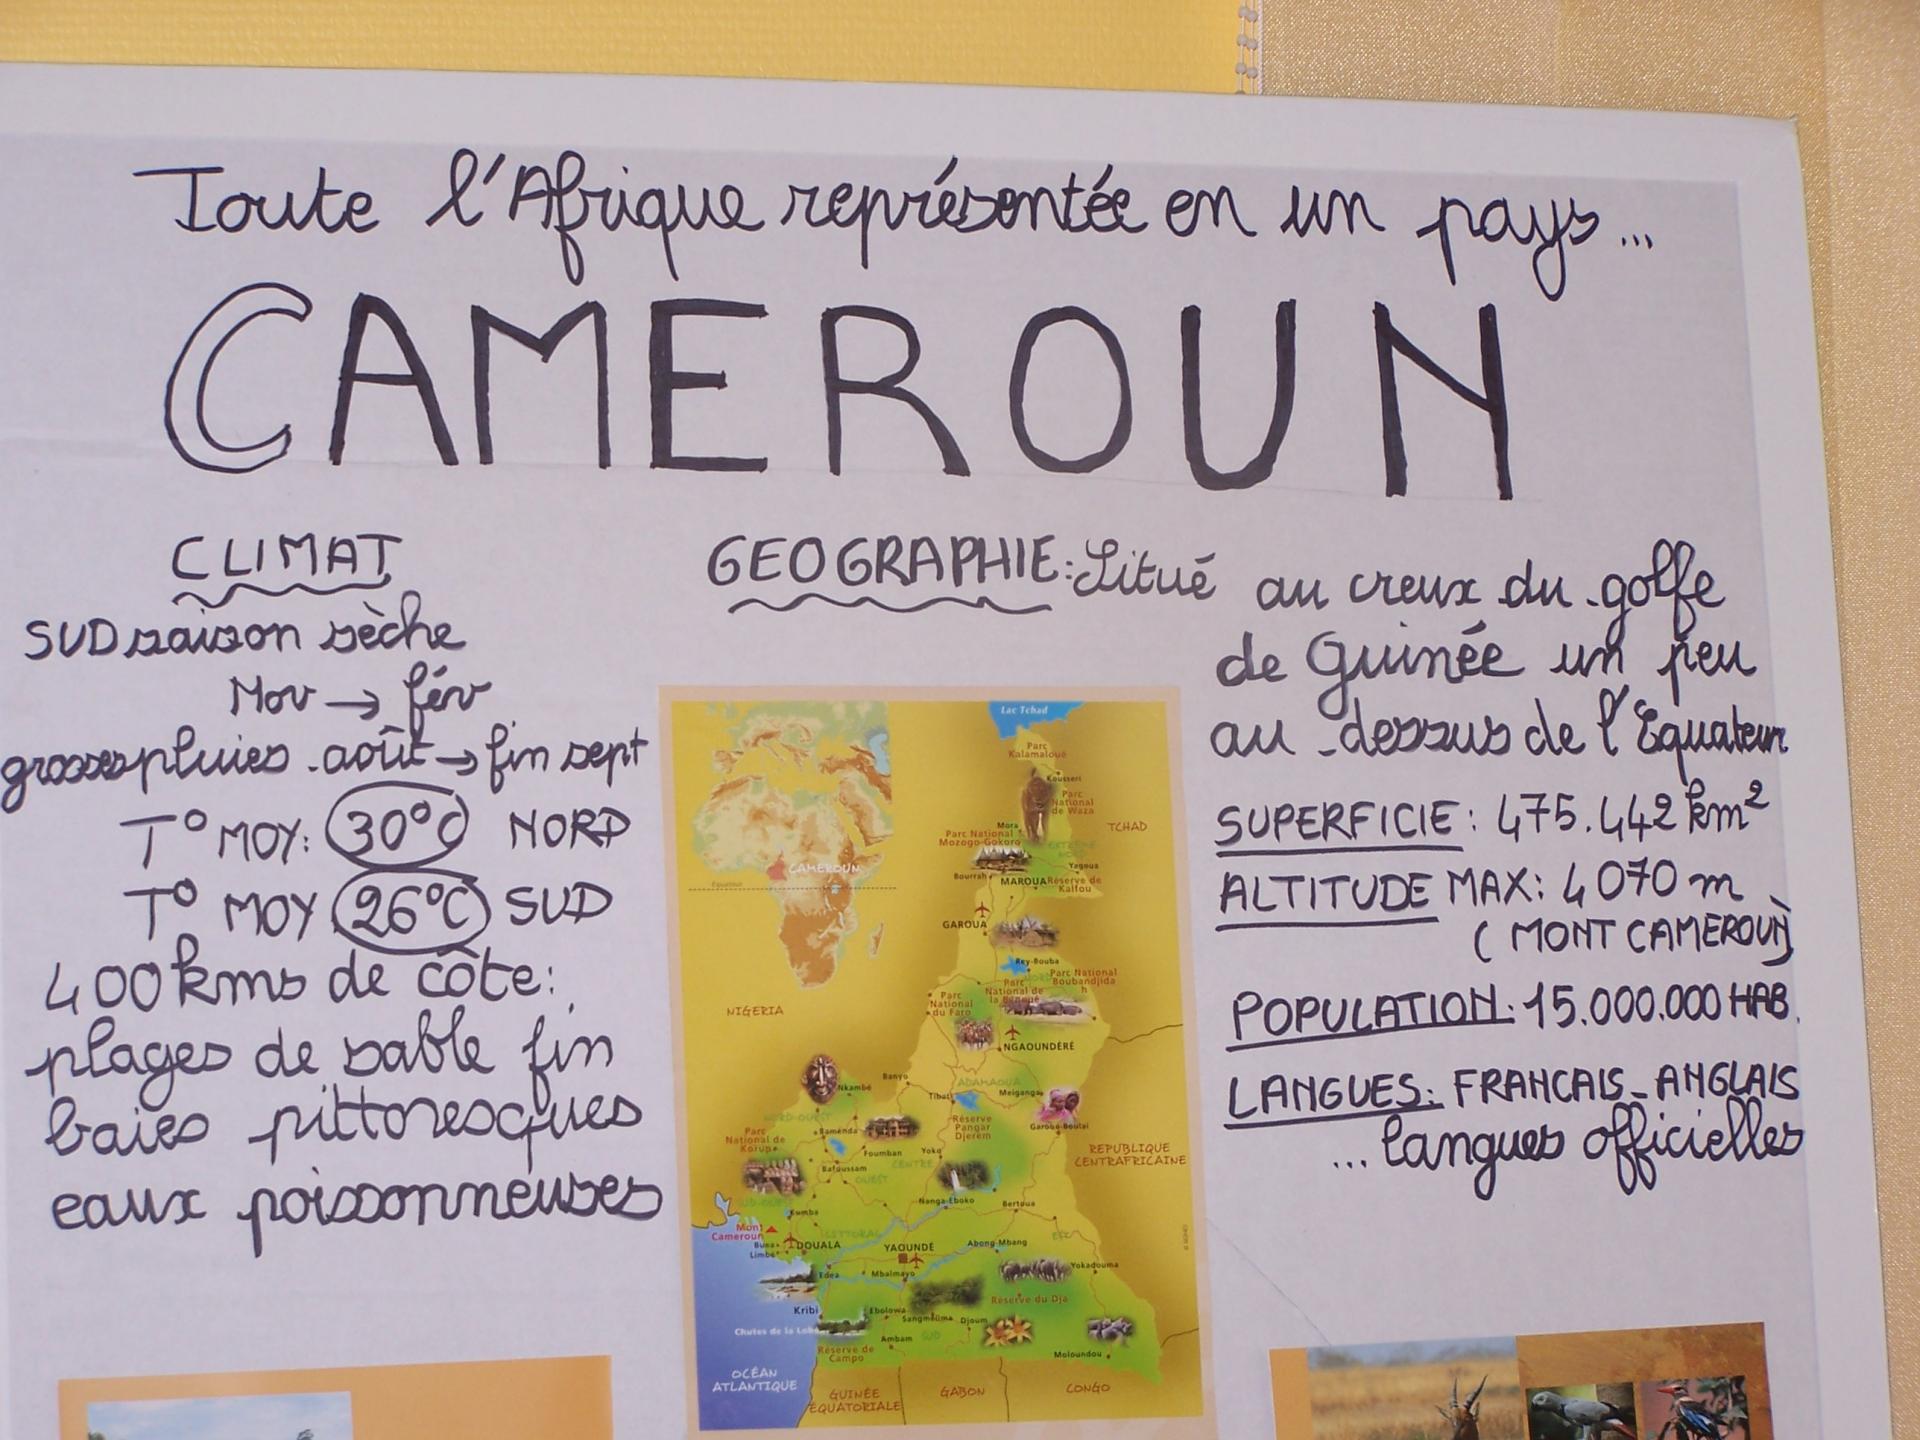 Toute l'Afrique représentée en un pays...
CAMEROUN
CLIMAT
SUD saison sèche
Nov → fév
grosses pluies août → fin sept
T° MOY: 30°C NORD
T° MOY 26°C SUD
400 kms de côte:
plages de sable fin
baies pittoresques
eaux poissonneuses
GEOGRAPHIE: Situé au creux du golfe
de Guinée un peu
au dessus de l'Equateur
SUPERFICIE: 475.442 km²
ALTITUDE MAX: 4070 m
(MONT CAMEROUN)
POPULATION: 15.000.000 HAB.
LANGUES: FRANCAIS_ANGLAIS
... langues officielles
Lac Tchad
Parc
Kalamaloué
Kousseri
Parc
National
de Waza
TCHAD
Mora
Parc National
Mozogo-Gokoro
EXTREME
NORD
Yagoua
Bourrah
MAROUA
Réserve de
Kalfou
CAMEROUN
Equateur
GAROUA
Rey-Bouba
NORD
Parc National
Boubandjida
h
Parc
National de
la Bénoué
Parc
National
du Faro
NIGERIA
NGAOUNDÉRÉ
Banyo
ADAMAOUA
Nkambé
Tibati
Meiganga
NORD-OUEST
Réserve
Pangar
Djerem
Garoua-Boulai
Bamenda
Parc
National de
Korup
Foumban
Yoko
REPUBLIQUE
CENTRAFRICAINE
Bafoussam
CENTRE
OUEST
SUD-OUEST
Nanga-Eboko
Bertoua
Kumba
Mont
Cameroun
LITTORAL
EST
Buea
DOUALA
YAOUNDÉ
Abong-Mbang
Limbe
Edea
Mbalmayo
Yokadouma
Kribi
Ebolowa
Réserve du Dja
Sangmélima
Djoum
Chutes de la Lobé
Ambam
SUD
Réserve de
Campo
Moloundou
OCÉAN
ATLANTIQUE
GUINÉE
ÉQUATORIALE
GABON
CONGO